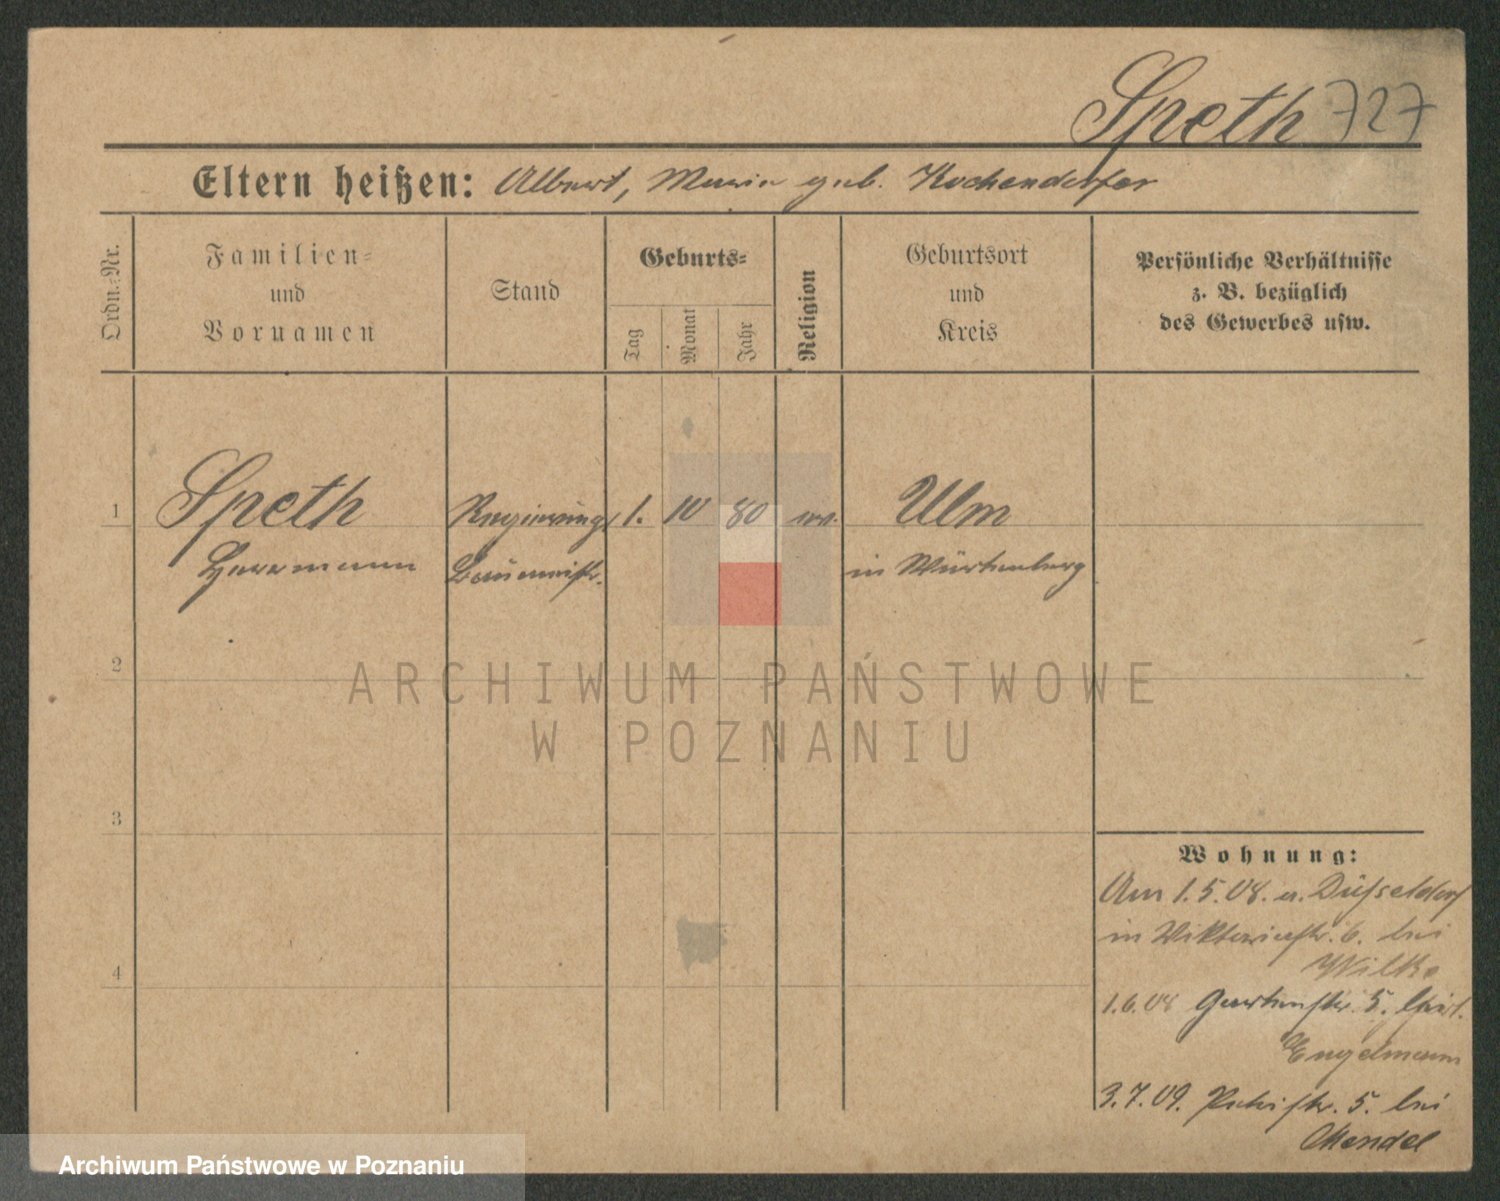 Speth 727
Eltern heißen: Albert, Marie geb. Kochendörfer
Ordn.-Nr.
Familien-
und
Vornamen
Stand
Geburts-
Tag
Monat
Jahr
Religion
Geburtsort
und
Kreis
Persönliche Verhältnisse
z. B. bezüglich
des Gewerbes usw.
1 Speth Regierungs 1. 10 80 ev. Ulm
Herrmann Baumeistr. in Würtenberg
2
ARCHIWUM PAŃSTWOWE
W POZNANIU
3
Wohnung:
Am 1.5.08. a. Düsseldorf
in Viktoriastr. 6. bei
Wilke
4
1.6.08 Gartenstr. 5. bei
Engelmann
3.7.09. 5. bei
Mendel
Archiwum Państwowe w Poznaniu